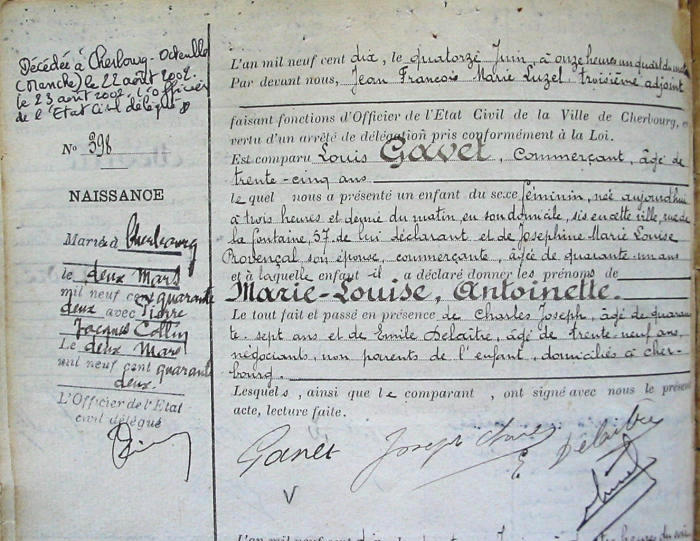 Décédée à Cherbourg-Octeville
(Manche) le 22 août 2002.
le 23 août 2002. L'Officier
de l'Etat Civil délégué
N° 398
NAISSANCE
Mariée à Cherbourg
le deux Mars
mil neuf cent quarante
deux avec Pierre
Jacques Collin
Le deux Mars
mil neuf cent quarante
deux.
L'Officier de l'Etat
civil délégué
L'an mil neuf cent dix, le quatorze Juin, à onze heures un quart du
Par devant nous, Jean François Marie Luzel troisième adjoint
faisant fonctions d'Officier de l'Etat Civil de la Ville de Cherbourg, e
vertu d'un arrêté de délégation pris conformément à la Loi.
Est comparu Louis Gavet, Commerçant, âgé de
trente-cinq ans
lequel nous a présenté un enfant du sexe féminin, née aujourd'hui
à trois heures et demie du matin, en son domicile, sis en cette ville, rue de
la Fontaine, 57, de lui déclarant et de Joséphine Marie Louise
Provençal son épouse, commerçante, âgée de quarante-un ans
et à laquelle enfant il a déclaré donner les prénoms de
Marie-Louise, Antoinette.
Le tout fait et passé en présence de Charles Joseph, âgé de quaran
te-sept ans et de Emile Delaitre, âgé de trente-neuf ans,
négociants, non parents de l'enfant, domiciliés à Cher-
bourg.
Lesquels, ainsi que le comparant, ont signé avec nous le présent
acte, lecture faite.
Gavet Joseph Charles E Delaitre
L'an mil neuf cent dix